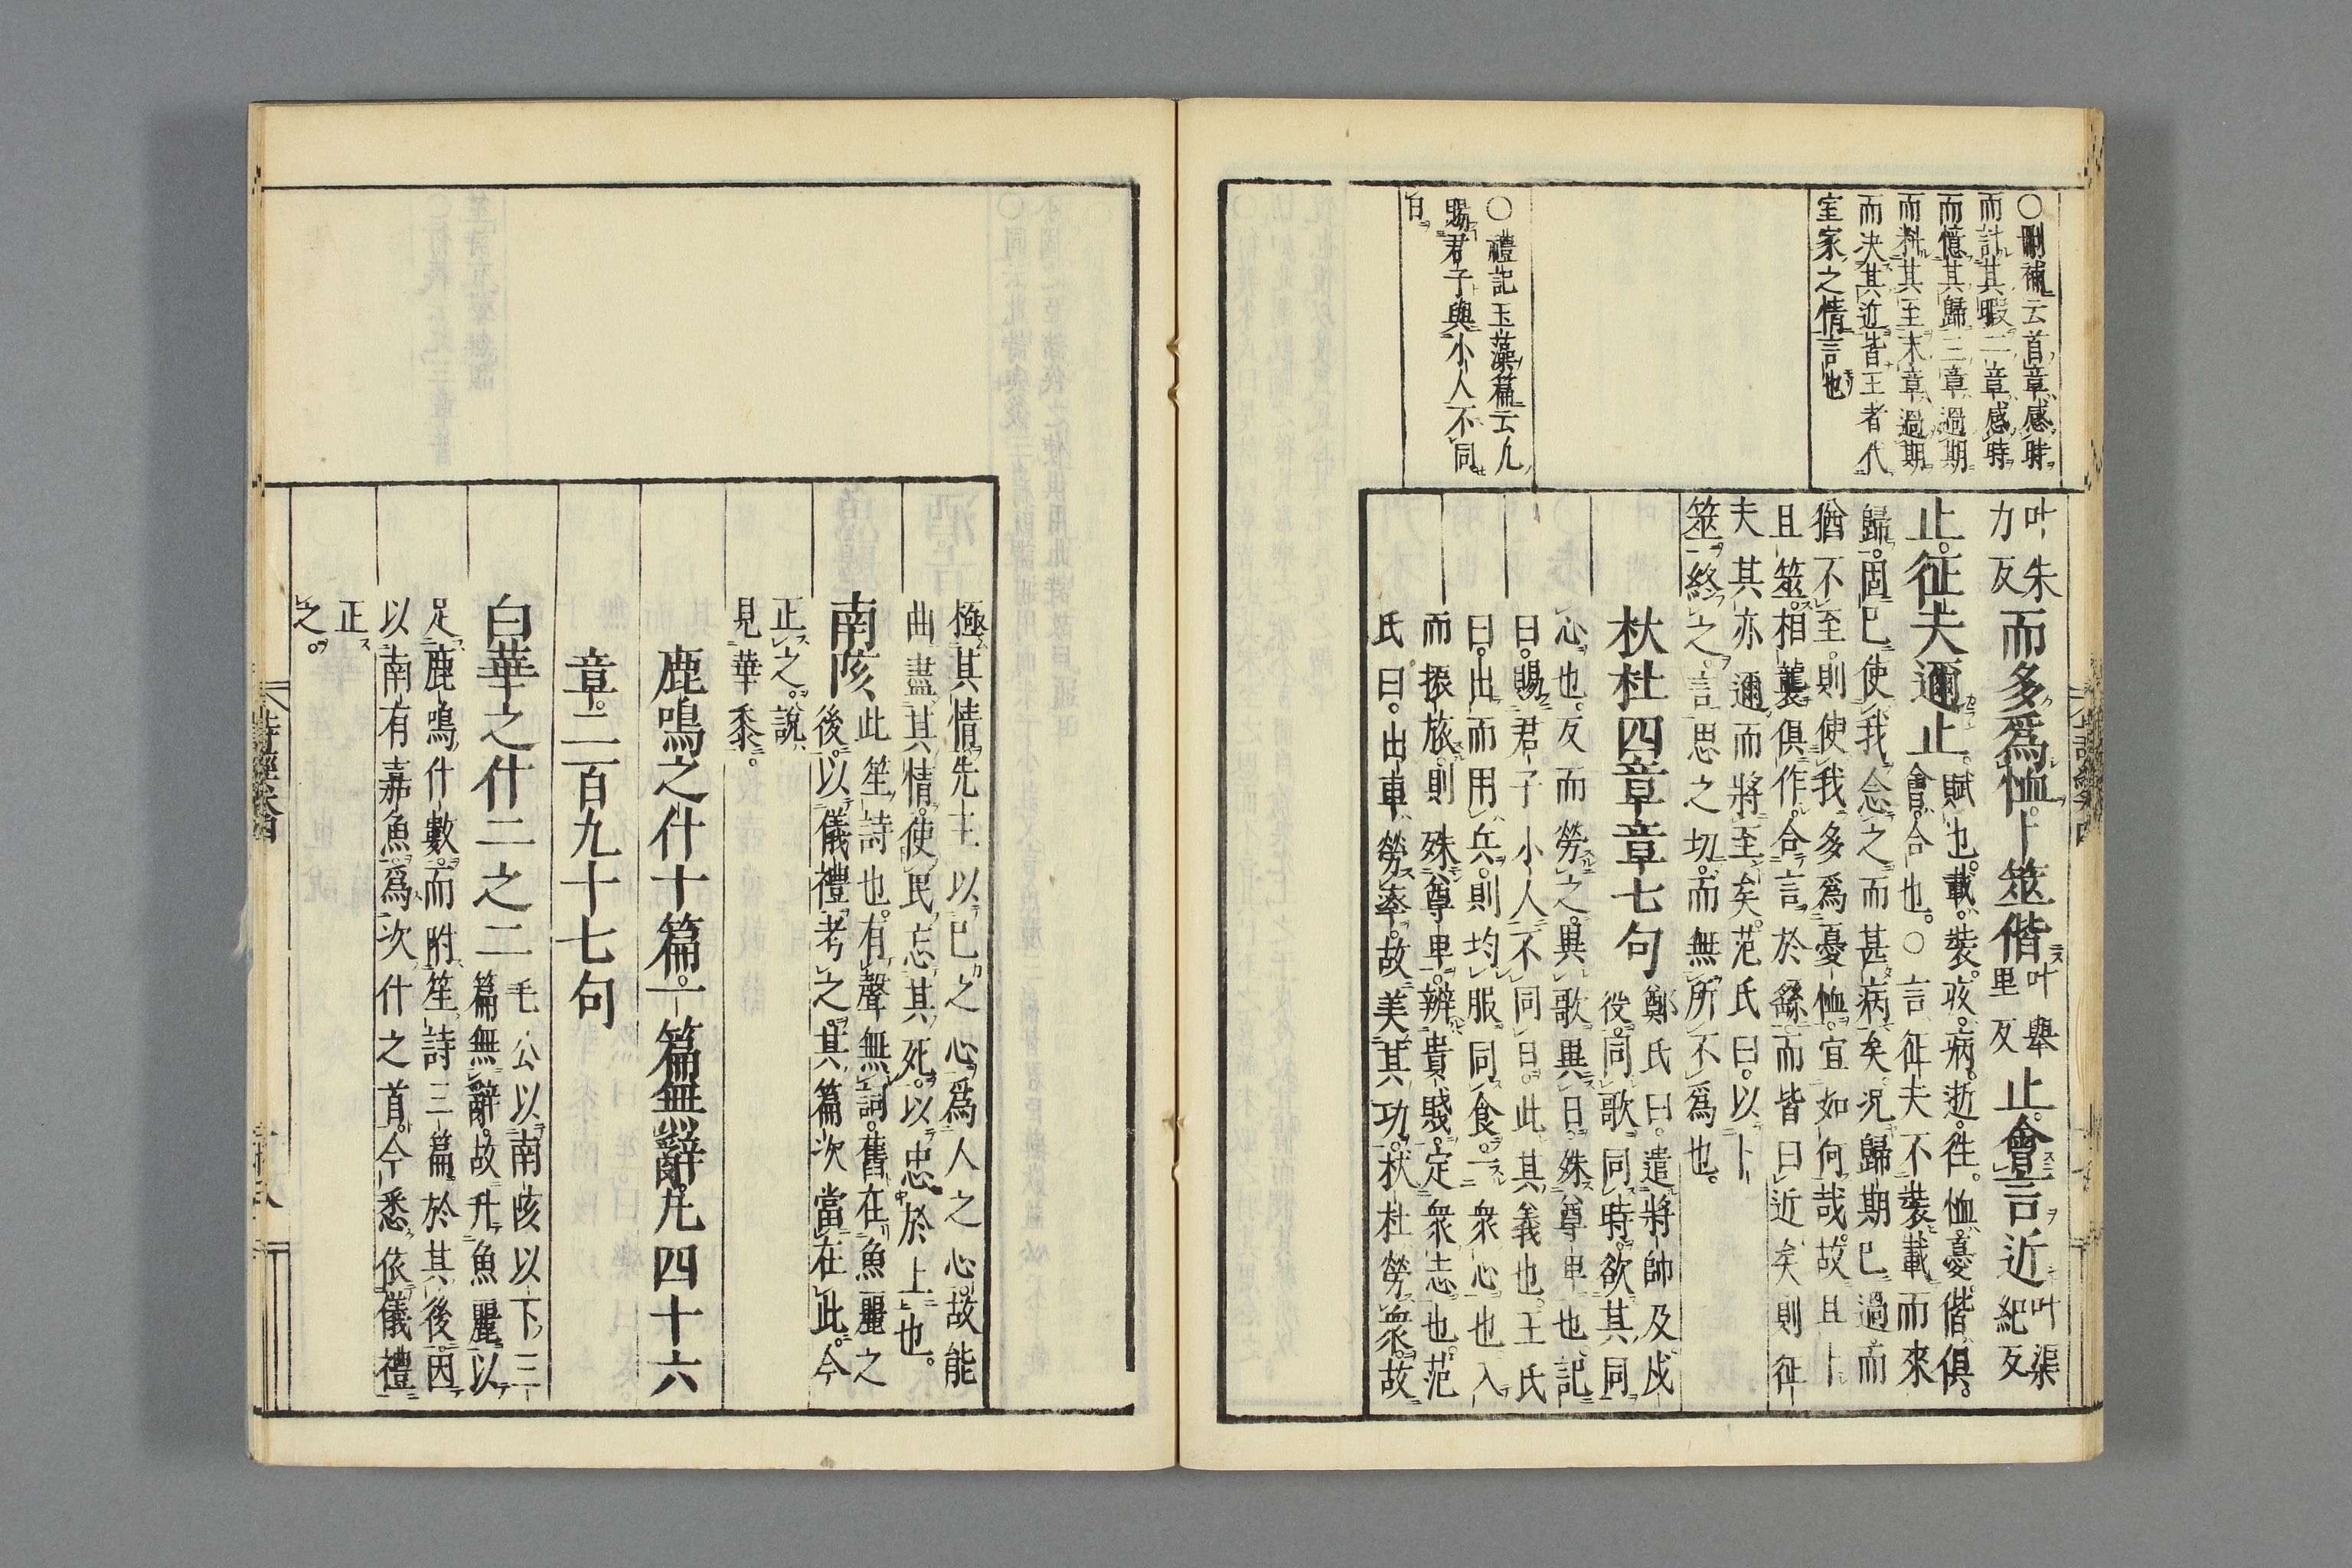 ○刪補云首章感時
而計其暇二章感時
而憶其歸三章過期
而料其至末章過期
而决其近皆王者代
室家之情言也
○禮記玉藻篇云凡
賜君子與小人不同
日
叶朱
力反
而多爲恤卜筮偕
叶舉
里反
止會言近
叶渠
紀反
止征夫邇止
賦也載裝疚病逝徃恤憂偕俱
會合也○言征夫不裝載而來
歸固已使我念之而甚病矣况歸期已過而
猶不至則使我多爲憂恤宜如何哉故且卜
且筮相襲俱作合言於繇而皆曰近矣則征
夫其亦邇而將至矣范氏曰以卜
筮終之言思之切而無所不爲也
杕杜四章章七句
鄭氏曰遣將帥及戍
役同歌同時欲其同
心也反而勞之異歌異日殊尊卑也記
曰賜君子小人不同日此其義也王氏
曰出而用兵則均服同食一衆心也入
而振旅則殊尊卑辨貴賤定衆志也范
氏曰出車勞率故美其功杕杜勞衆故
極其情先王以己之心爲人之心故能
曲盡其情使民忘其死以忠於上也
南陔
此笙詩也有聲無詞舊在魚麗之
後以儀禮考之其篇次當在此今
正之說
見華黍
鹿鳴之什十篇一篇無辭凡四十六
章二百九十七句
白華之什二之二
毛公以南陔以下三
篇無辭故升魚麗以
足鹿鳴什數而附笙詩三篇於其後因
以南有嘉魚爲次什之首今悉依儀禮
正
之
詩經卷四